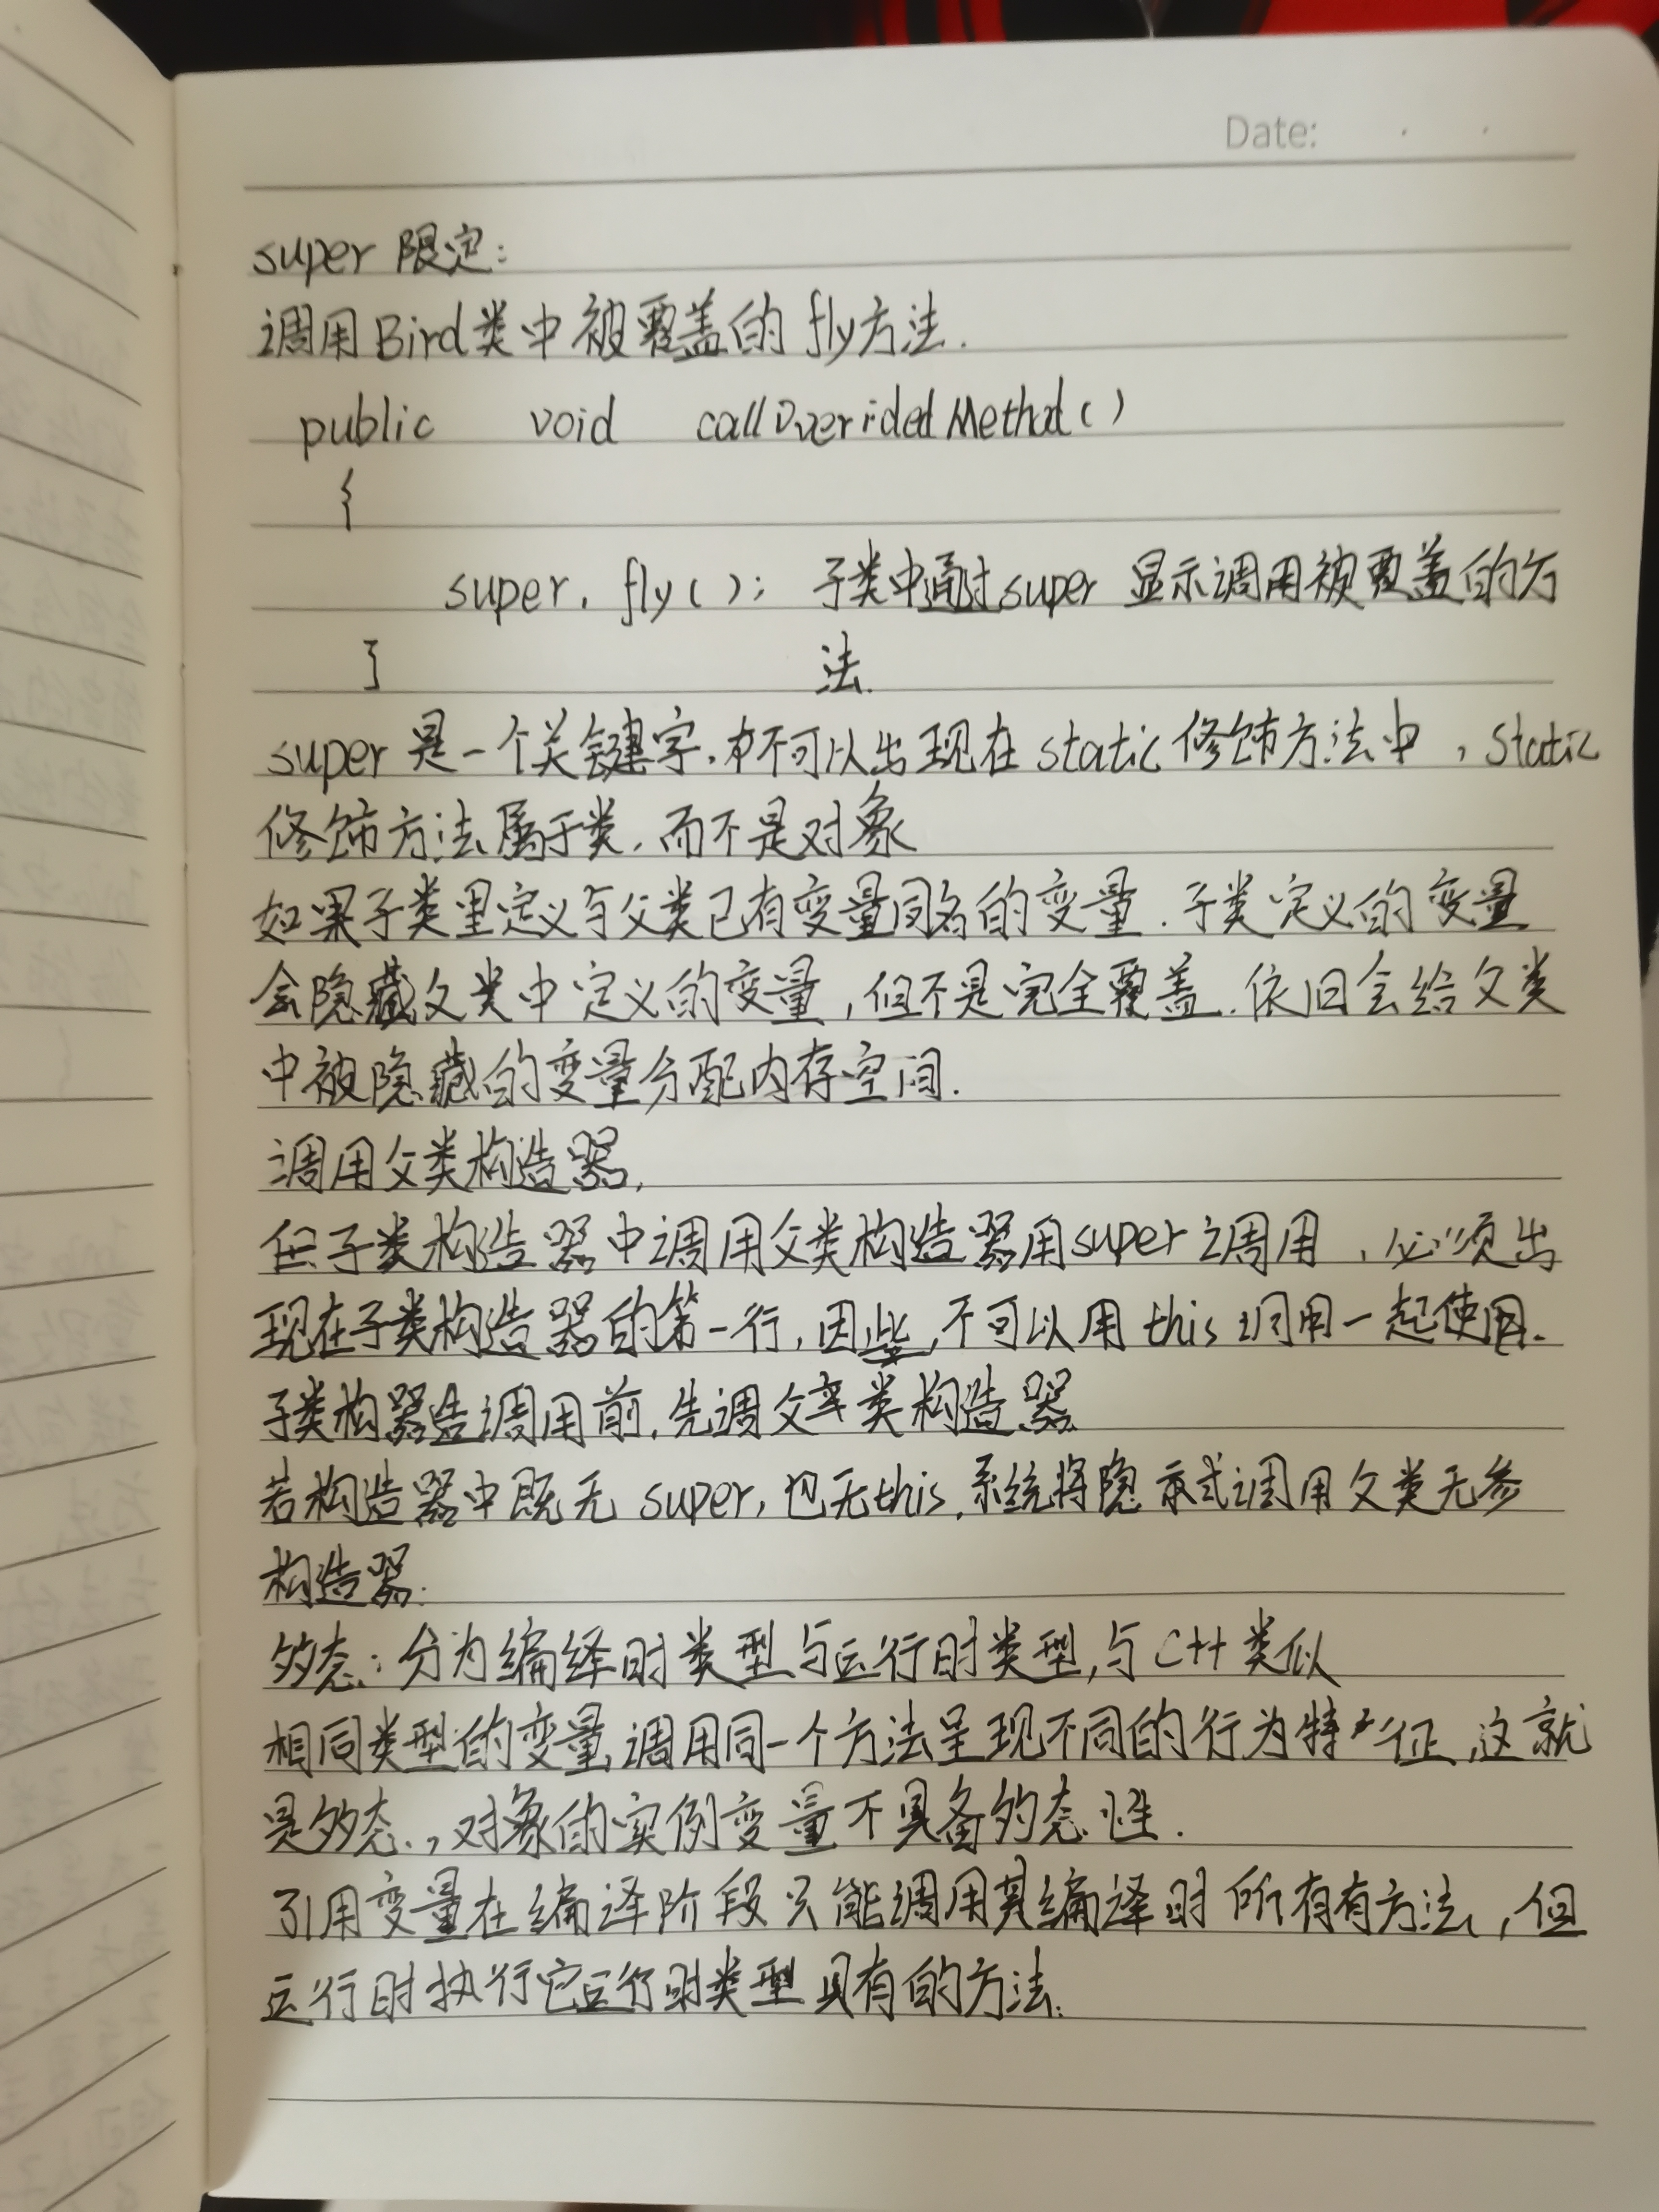 Date:
super 限定:
调用Bird类中被覆盖的 fly方法.
public void callOverridedMethod()
{
super. fly(); 子类中通过super 显示调用被覆盖的方
} 法.
super 是一个关键字,不可以出现在 static 修饰方法中, static
修饰方法属于类, 而不是对象
如果子类里定义与父类已有变量同名的变量. 子类定义的变量
会隐藏父类中定义的变量, 但不是完全覆盖. 依旧会给父类
中被隐藏的变量分配内存空间.
调用父类构造器,
但子类构造器中调用父类构造器用super调用, 必须出
现在子类构造器的第一行, 因此, 不可以用 this 调用一起使用.
子类构器造调用前, 先调父类构造器
若构造器中既无 super, 也无this, 系统将隐式调用父类无参
构造器.
多态: 分为编绎时类型与运行时类型, 与 C++ 类似
相同类型的变量, 调用同一个方法呈现不同的行为特征, 这就
是多态., 对象的实例变量不具备多态性.
引用变量在编译阶段只能调用其编译时所有有方法, 但
运行时执行它运行时类型具有的方法.